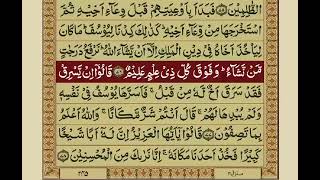 الظّٰلِمِیْنَ ﴿۷۵﴾ فَبَدَاَ بِاَوْعِیَتِهِمْ قَبْلَ وِعَآءِ اَخِیْهِ ثُمَّ
اسْتَخْرَجَهَا مِنْ وِّعَآءِ اَخِیْهِ ؕ كَذٰلِكَ كِدْنَا لِیُوْسُفَ ؕ مَا كَانَ
لِیَاْخُذَ اَخَاهُ فِیْ دِیْنِ الْمَلِكِ اِلَّاۤ اَنْ یَّشَآءَ اللّٰهُ ؕ نَرْفَعُ دَرَجٰتٍ
مَّنْ نَّشَآءُ ؕ وَفَوْقَ كُلِّ ذِیْ عِلْمٍ عَلِیْمٌ ﴿۷۶﴾ قَالُوْۤا اِنْ یَّسْرِقْ
فَقَدْ سَرَقَ اَخٌ لَّهٗ مِنْ قَبْلُ ۚ فَاَسَرَّهَا یُوْسُفُ فِیْ نَفْسِهٖ
وَلَمْ یُبْدِهَا لَهُمْ ۚ قَالَ اَنْتُمْ شَرٌّ مَّكَانًا ۚ وَاللّٰهُ اَعْلَمُ
بِمَا تَصِفُوْنَ ﴿۷۷﴾ قَالُوْا یٰۤاَیُّهَا الْعَزِیْزُ اِنَّ لَهٗۤ اَبًا شَیْخًا
كَبِیْرًا فَخُذْ اَحَدَنَا مَكَانَهٗ ۚ اِنَّا نَرٰىكَ مِنَ الْمُحْسِنِیْنَ
۲۳۵